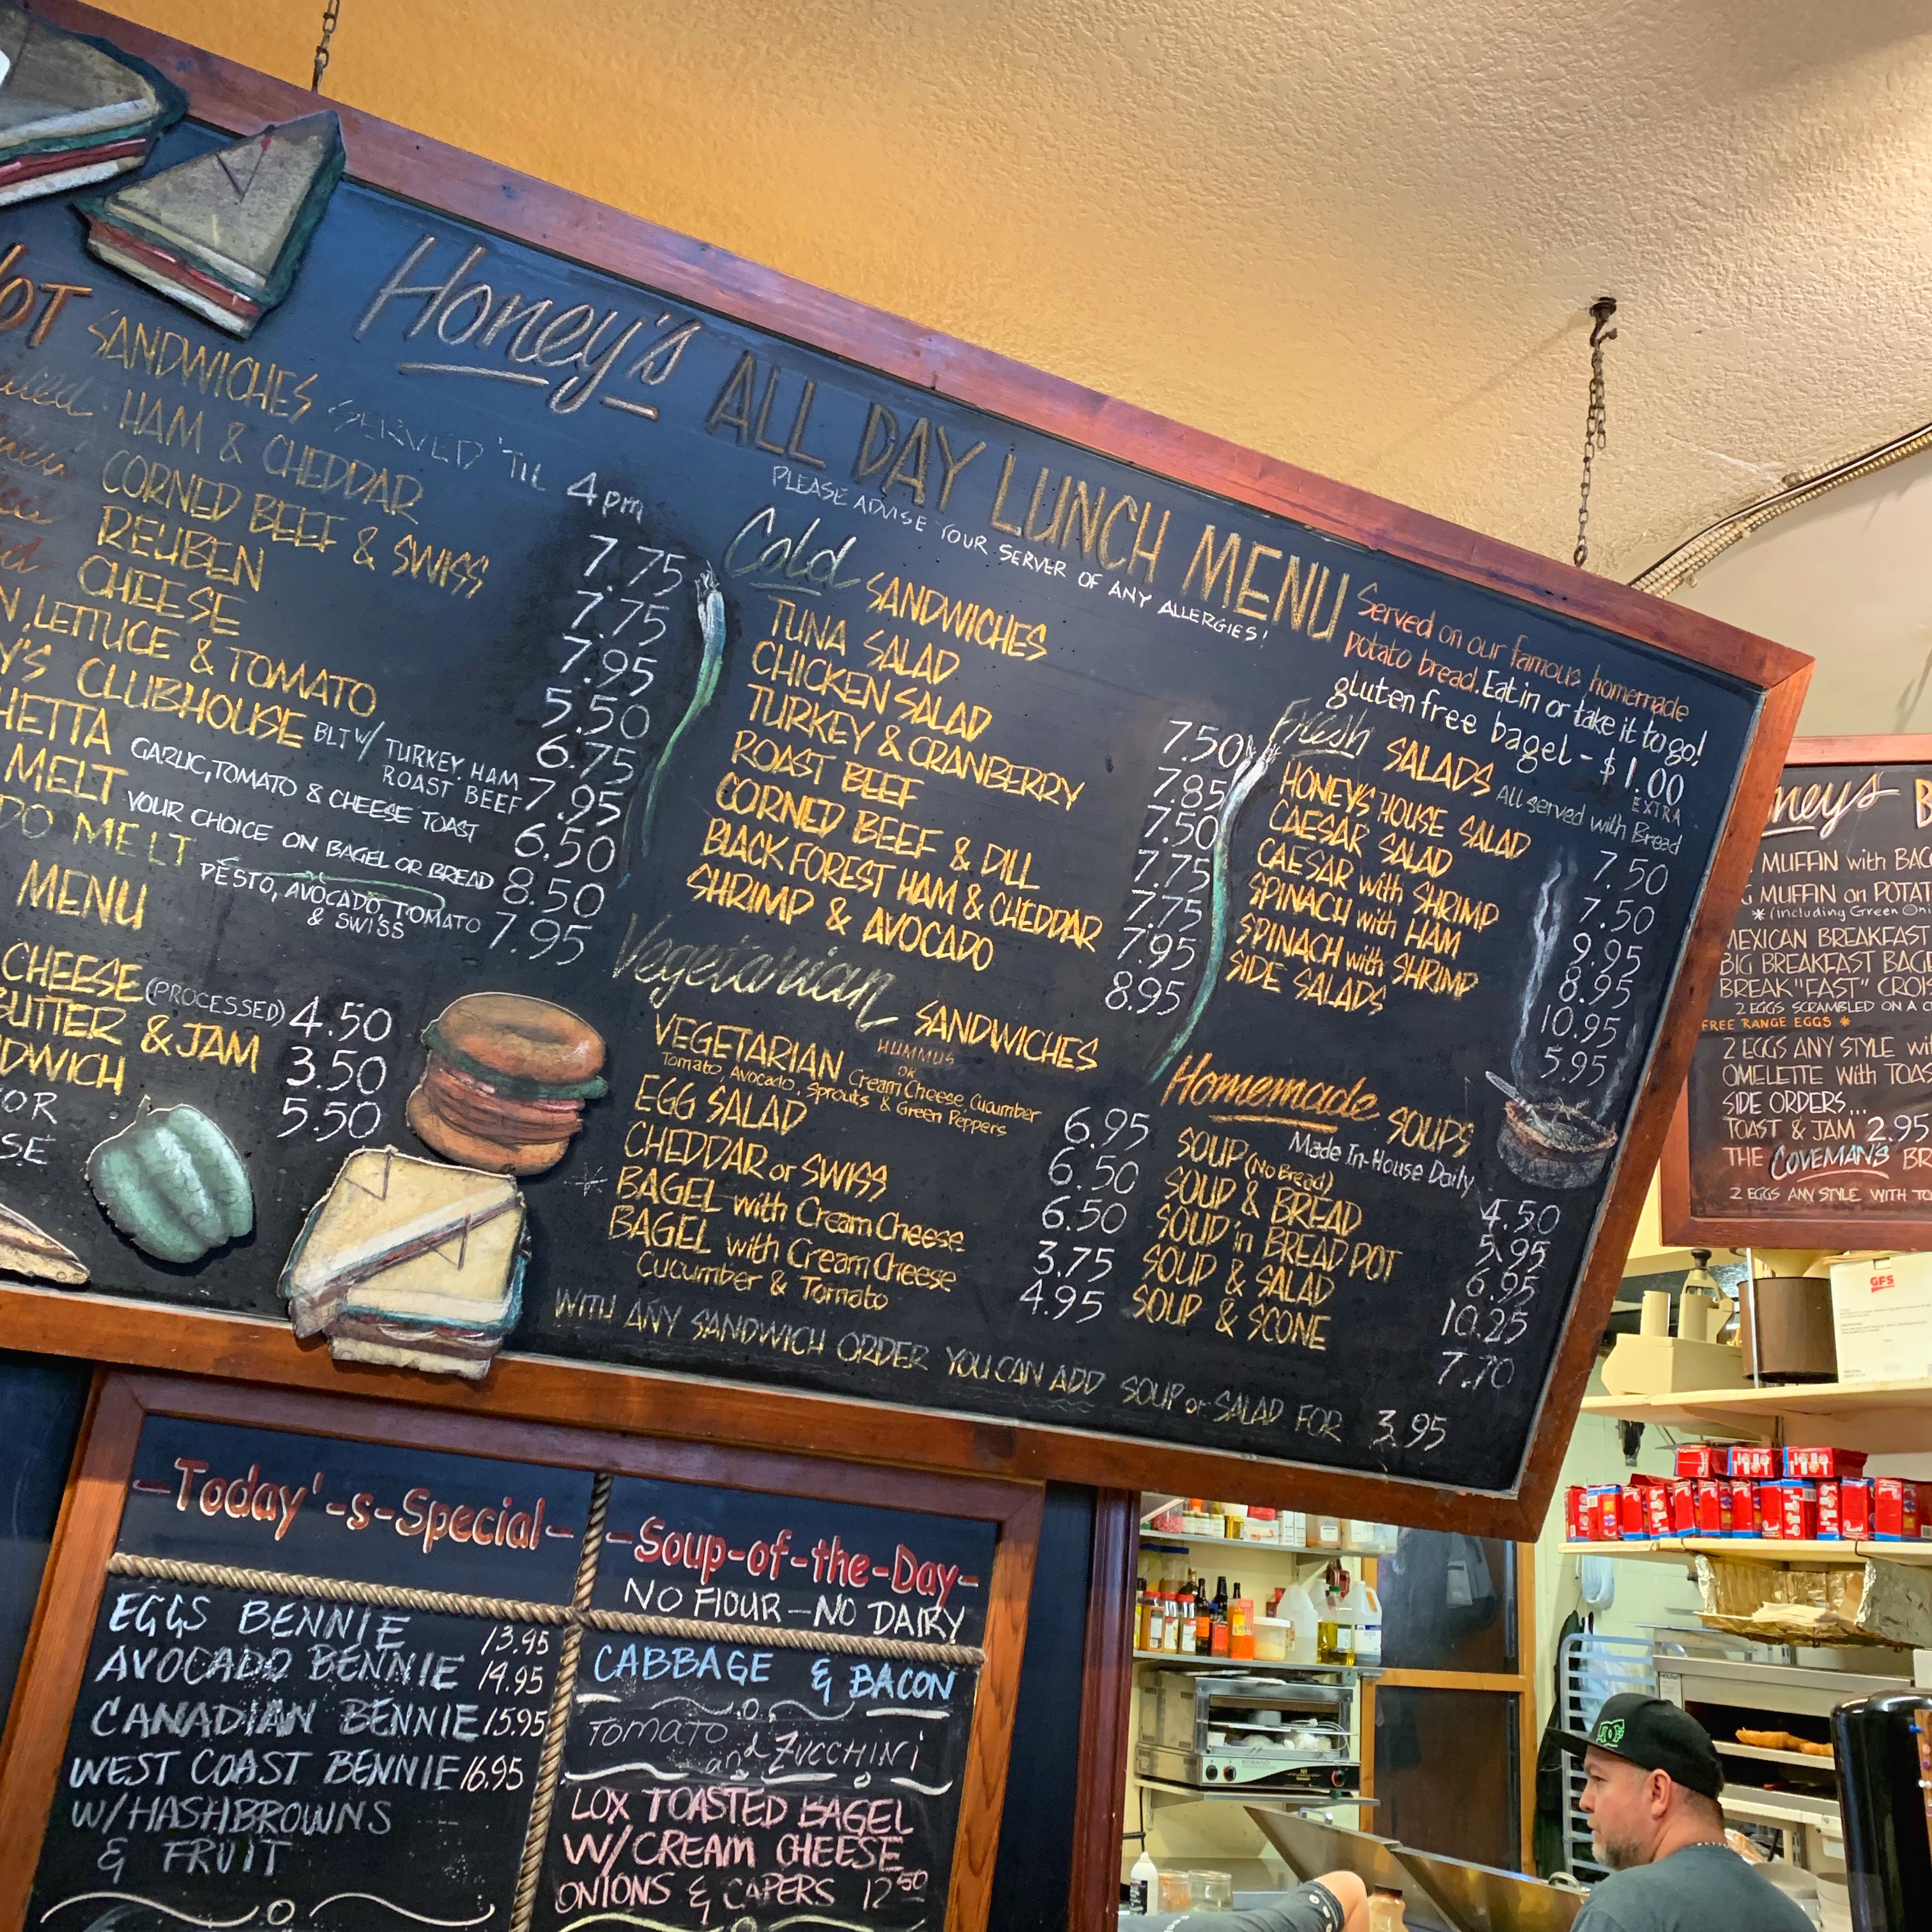 Honey's ALL DAY LUNCH MENU
PLEASE ADVISE YOUR SERVER OF ANY ALLERGIES!
Served on our famous homemade
potato bread. Eat in or take it to go!
gluten free bagel - $1.00
EXTRA
HOT SANDWICHES SERVED 'TIL 4pm
HAM & CHEDDAR 7.75
CORNED BEEF & SWISS 7.75
REUBEN 7.95
CHEESE 5.50
LETTUCE & TOMATO 6.75
CLUBHOUSE BLT W/ TURKEY, HAM 7.95
ROAST BEEF
GARLIC, TOMATO & CHEESE TOAST 6.50
MELT YOUR CHOICE ON BAGEL OR BREAD 8.50
MELT PESTO, AVOCADO, TOMATO 7.95
& SWISS
MENU
CHEESE (PROCESSED) 4.50
BUTTER & JAM 3.50
5.50
OR
Cold SANDWICHES
TUNA SALAD 7.50
CHICKEN SALAD 7.85
TURKEY & CRANBERRY 7.50
ROAST BEEF 7.75
CORNED BEEF & DILL 7.75
BLACK FOREST HAM & CHEDDAR 7.95
SHRIMP & AVOCADO 8.95
Vegetarian SANDWICHES
HUMMUS
OR
VEGETARIAN Cream Cheese, Cucumber 6.95
Tomato, Avocado, Sprouts & Green Peppers
EGG SALAD 6.50
CHEDDAR or SWISS 6.50
BAGEL with Cream Cheese 3.75
BAGEL with Cream Cheese 4.95
Cucumber & Tomato
WITH ANY SANDWICH ORDER YOU CAN ADD SOUP or SALAD FOR 3.95
Fresh SALADS All served with Bread
HONEY'S HOUSE SALAD 7.50
CAESAR SALAD 7.50
CAESAR with SHRIMP 9.95
SPINACH with HAM 8.95
SPINACH with SHRIMP 10.95
SIDE SALADS 5.95
Homemade SOUPS
Made In-House Daily
SOUP (No Bread) 4.50
SOUP & BREAD 5.95
SOUP in BREAD POT 6.95
SOUP & SALAD 10.25
SOUP & SCONE 7.70
MUFFIN with
MUFFIN on
* (Including Green
MEXICAN BREAKFAST
BIG BREAKFAST
BREAK"FAST"
2 EGGS SCRAMBLED ON A
FREE RANGE EGGS *
2 EGGS ANY STYLE
OMELETTE with
SIDE ORDERS...
TOAST & JAM 2.95
THE COVEMAN'S
2 EGGS ANY STYLE WITH
GFS
-Today'-s-Special-
EGGS BENNIE 13.95
AVOCADO BENNIE 14.95
CANADIAN BENNIE 15.95
WEST COAST BENNIE 16.95
W/HASHBROWNS
& FRUIT
-Soup-of-the-Day-
NO FlOUR - NO DAIRY
CABBAGE & BACON
Tomato
and Zucchini
LOX TOASTED BAGEL
W/CREAM CHEESE
ONIONS & CAPERS 12 50